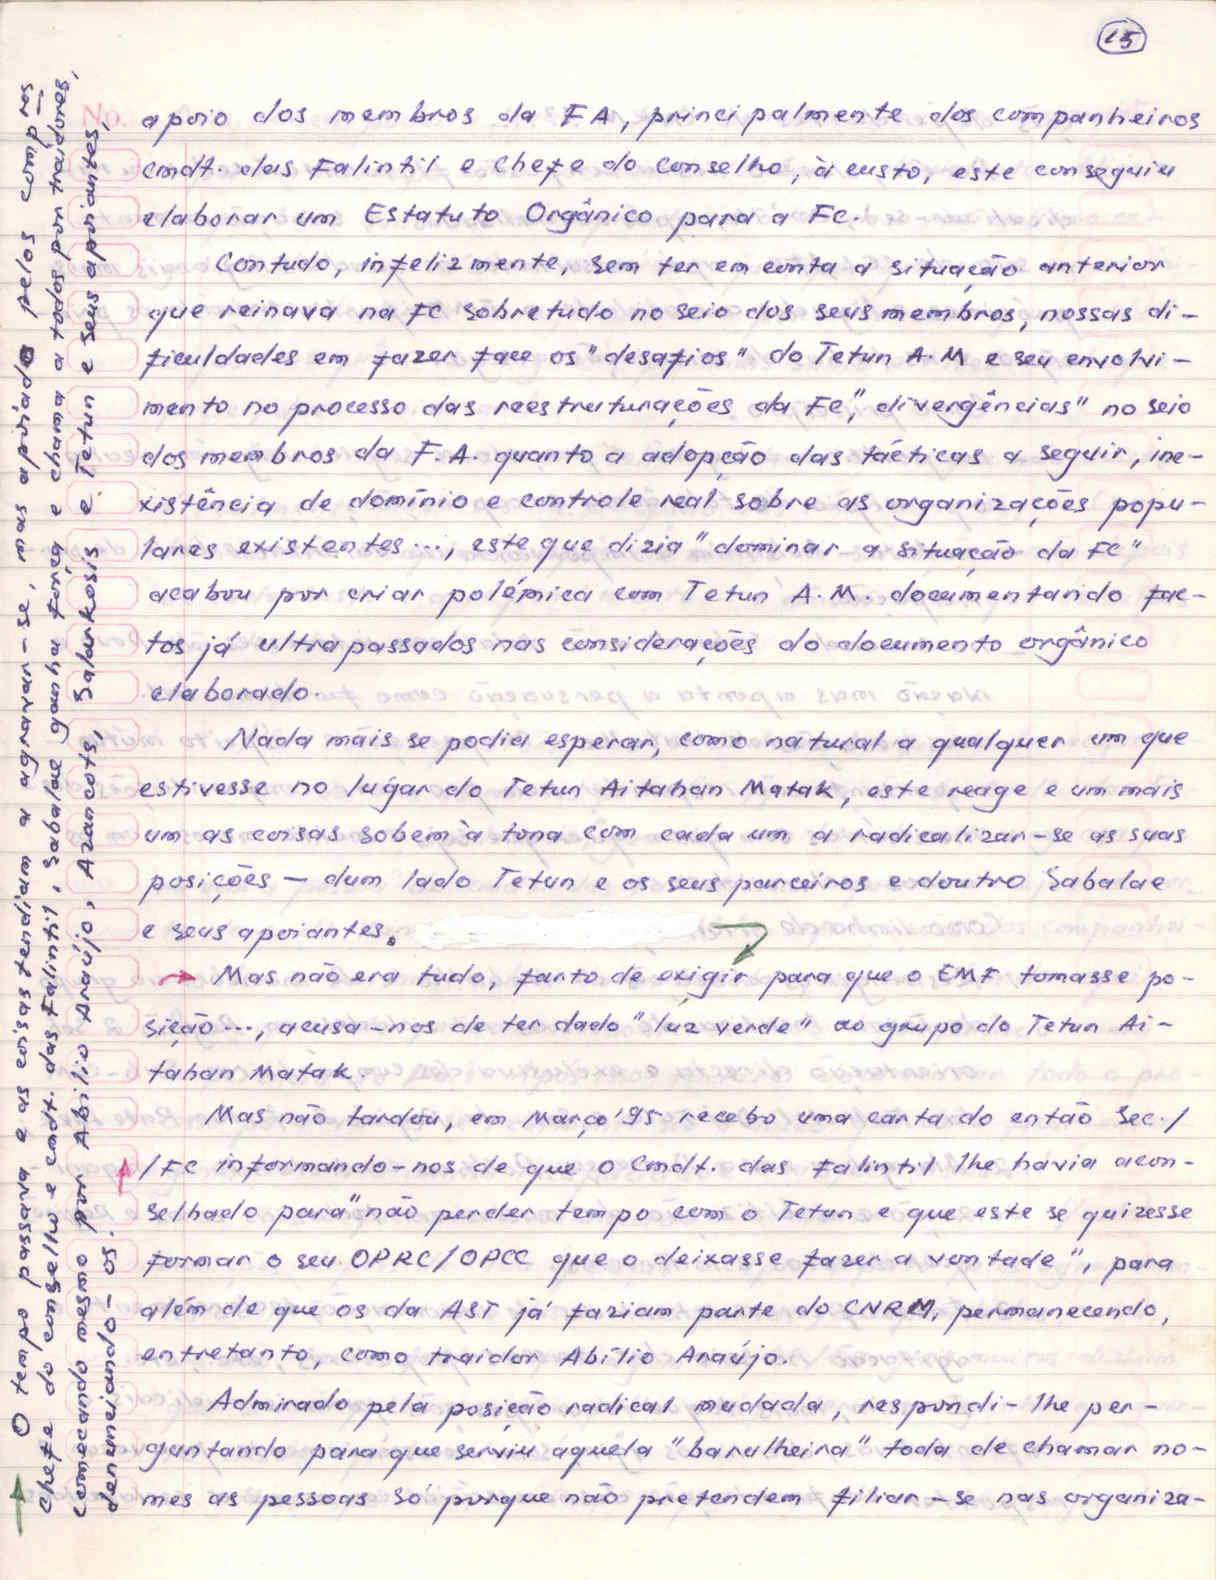 15
No.
apoio dos membros da FA, principalmente dos companheiros
cmdt. das Falintil e Chefe do Conselho, à custo, este conseguiu
elaborar um Estatuto Orgânico para a FC.
Contudo, infelizmente, sem ter em conta a situação anterior
que reinava na FC sobretudo no seio dos seus membros, nossas di-
ficuldades em fazer face os "desafios" do Tetun A.M e seu envolvi-
mento no processo das reestruturações da FC, "divergências" no seio
dos membros da F.A. quanto a adopção das tácticas a seguir, ine-
xistência de domínio e controle real sobre as organizações popu-
lares existentes..., este que dizia "dominar a situação da FC"
acabou por criar polémica com Tetun A.M. documentando fac-
tos já ultrapassados nas considerações do documento orgânico
elaborado.
Nada mais se podia esperar, como natural a qualquer um que
estivesse no lugar do Tetun Aitahan Matak, este reage e um mais
um as coisas sobem à tona com cada um a radicalizar-se as suas
posições — dum lado Tetun e os seus parceiros e doutro Sabalae
e seus apoiantes.
Mas não era tudo, farto de exigir para que o EMF tomasse po-
sição..., acusa-nos de ter dado "luz verde" ao grupo do Tetun Ai-
tahan Matak.
Mas não tardou, em Março '95 recebo uma carta do então Sec./
/FC informando-nos de que o Cmdt. das Falintil lhe havia acon-
selhado para "não perder tempo com o Tetun e que este se quizesse
formar o seu OPRC/OPCC que o deixasse fazer a vontade", para
além de que os da AST já faziam parte do CNRM, permanecendo,
entretanto, como traidor Abílio Araújo.
Admirado pela posição radical mudada, respondi-lhe per-
guntando para que serviu aquela "baralheira" toda de chamar no-
mes as pessoas só porque não pretendem filiar-se nas organiza-
O tempo passava e as coisas tendiam a agravar-se, mas apoiado pelos compros
Chefe do conselho e cmdt. das Falintil, Sabalae ganha força e chama a todos por traidores,
começando mesmo por Abílio Araújo, Azancots, Salarkosis e Tetun e seus apoiantes,
denunciando-os.